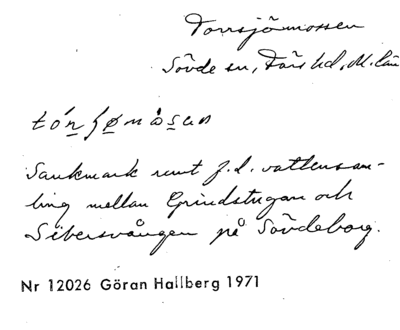 Torrsjömossen
Sövde sn, Färs hd, M. län
Sankmark runt f.d. vattensam-
ling mellan Grindstugan och
Sibersvången på Sövdeborg.
Nr 12026 Göran Hallberg 1971